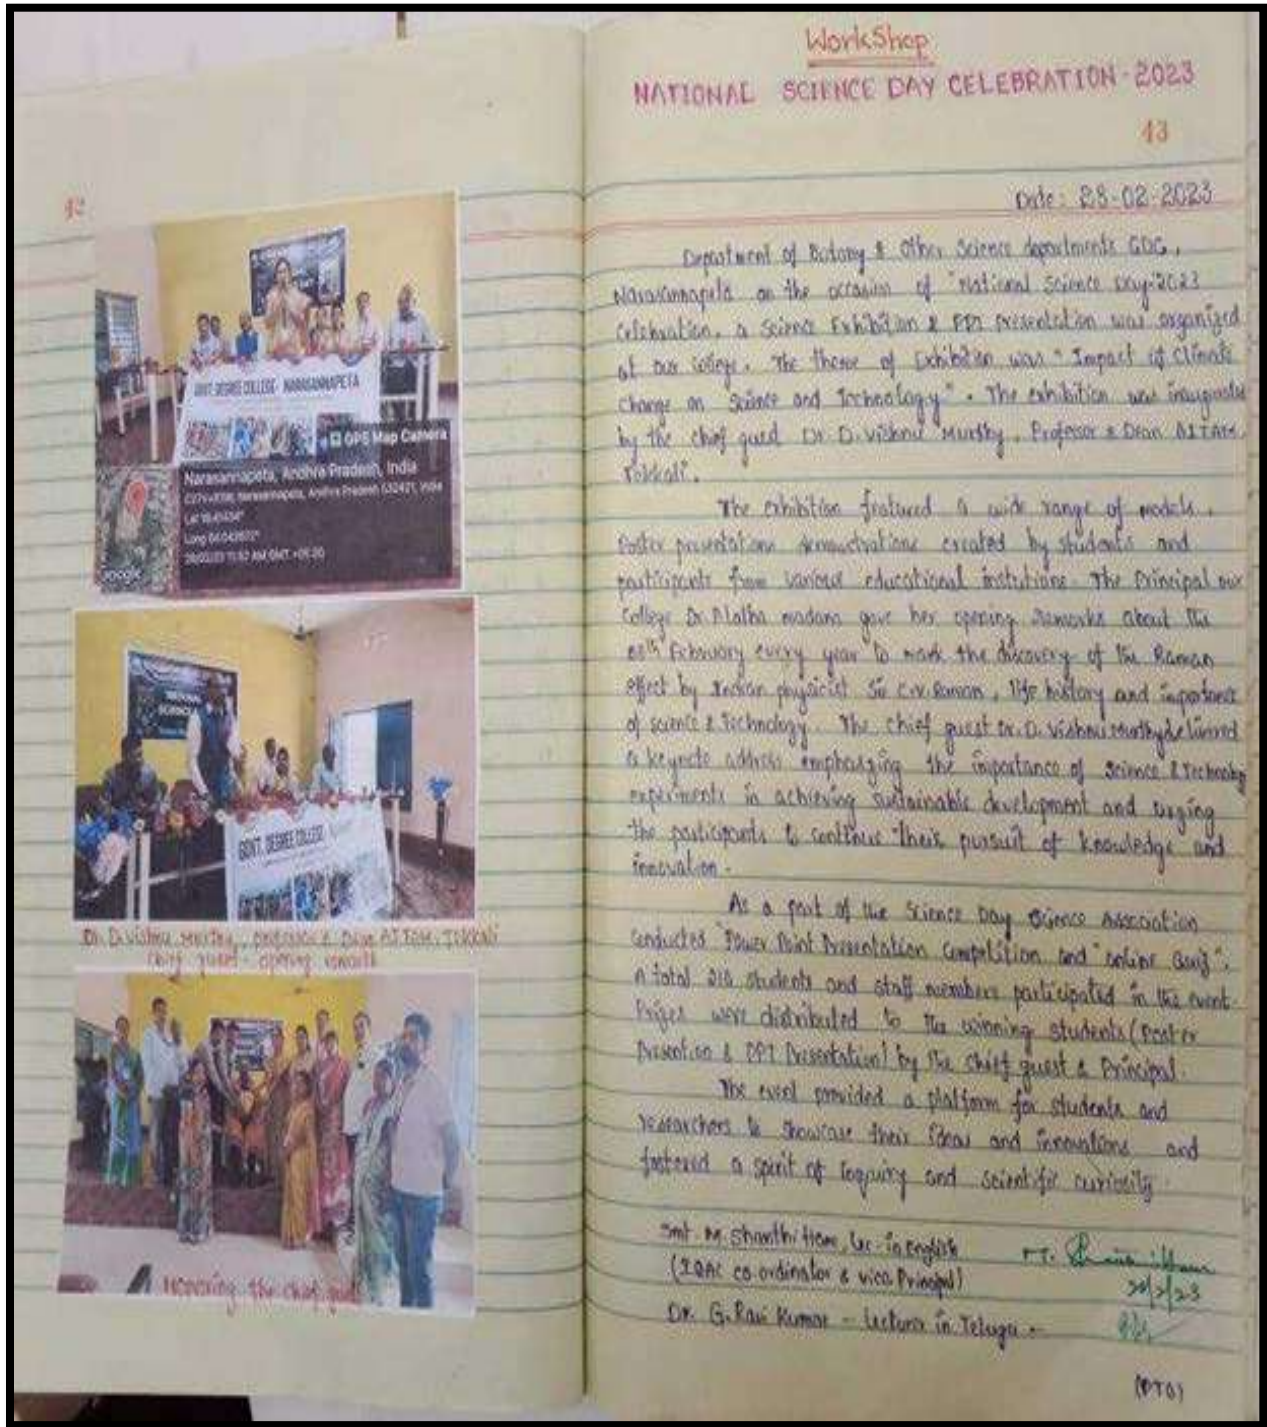 42
GOVT. DEGREE COLLEGE - NARASANNAPETA
GPS Map Camera
Narasannapeta, Andhra Pradesh, India
Narasannapeta, Andhra Pradesh 532421, India
Lat
Long
11:52 AM GMT +05:30
Google
GOVT. DEGREE COLLEGE
Dr. D. Vishnu Murthy, Dean AITAM, TEKKALI
Chief guest - opening remarks
Honoring the chief guest
WorkShop
NATIONAL SCIENCE DAY CELEBRATION - 2023
43
Date: 28-02-2023
Department of Botany & Other Science departments GDC,
Narasannapeta on the occasion of "National Science Day-2023
Celebration, a Science Exhibition & PPT presentation was organized
at our college. The theme of Exhibition was "Impact of Climate
Change on Science and Technology". The exhibition was
by the chief guest Dr. D. Vishnu Murthy, Professor & Dean AITAM,
Tekkali.
The exhibition featured a wide range of models,
Poster presentations demonstrations created by students and
participants from various educational The Principal our
College Dr. P. Latha madam gave her opening remarks about the
28th February every year to mark the discovery of the Raman
effect by Indian physicist Sir C.V. Raman, life history and importance
of science & Technology. The chief guest Dr. D. Vishnu Murthy delivered
a keynote address emphasizing the importance of science & Technology
experiments in achieving sustainable development and urging
the participants to continue their pursuit of knowledge and
innovation.
As a part of the Science Day Science Association
conducted "Power Point Presentation Competition and "online Quiz".
A total students and staff members participated in the event.
Prizes were distributed to the winning students (Poster
& PPT Presentation) by the chief guest & Principal.
The event provided a platform for students and
researchers to showcase their ideas and innovations and
fostered a spirit of Inquiry and scientific curiosity.
Smt. M. Shanthi Lec. in English
(IQAC co-ordinator & vice Principal)
Dr. G. Ravi Kumar - Lecturer in Telugu -
(PTO)